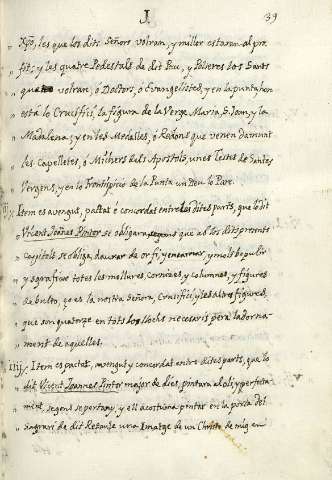 J. 39
Xpo, les que los dits Señors volran, y millor estaran al pro
" fit; y les quatre Pedestals de dit Peu, y Polseres los Sants
" que volran, ó Doctors, ó Evangelistes, y en la punta hon
" está lo Crusifisi, la figura de la Verge Maria, S. Joan, y la
" Madalena; y en les Medalles, ó Redons que venen damunt
" les Capelletes, ó Nichers dels Apostols, unes Testes de Santes
" Vergens, y en lo frontispicio de la Punta un Deu lo Pare.
iij. Item es avengut, pactat é concordat entre les dites parts, que lo dit
" Vicent Joanes Pintor se obligara segons que ab los dits presents
" capitols se obliga, daurar de or fi, y encarnar, y molt be pulir
" y sgrafiar totes les mollures, cornizes, y columnes, y figures
" de bulto, ço es la nostra Señora, Crusifici, y les altres figures,
" que son quatorze en tots los llochs necesaris pera la dorna
" ment de aquelles.
iiij. Item es pactat, avengut y concordat entre dites parts, que lo
" dit Vicent Joannes Pintor major de dies, pintara al oli, y perfecta
" ment, segons se pertany, y ell acostuma pintar en la porta del
" Sagrari de dit Retaule una Imatge de un Christo de mig en